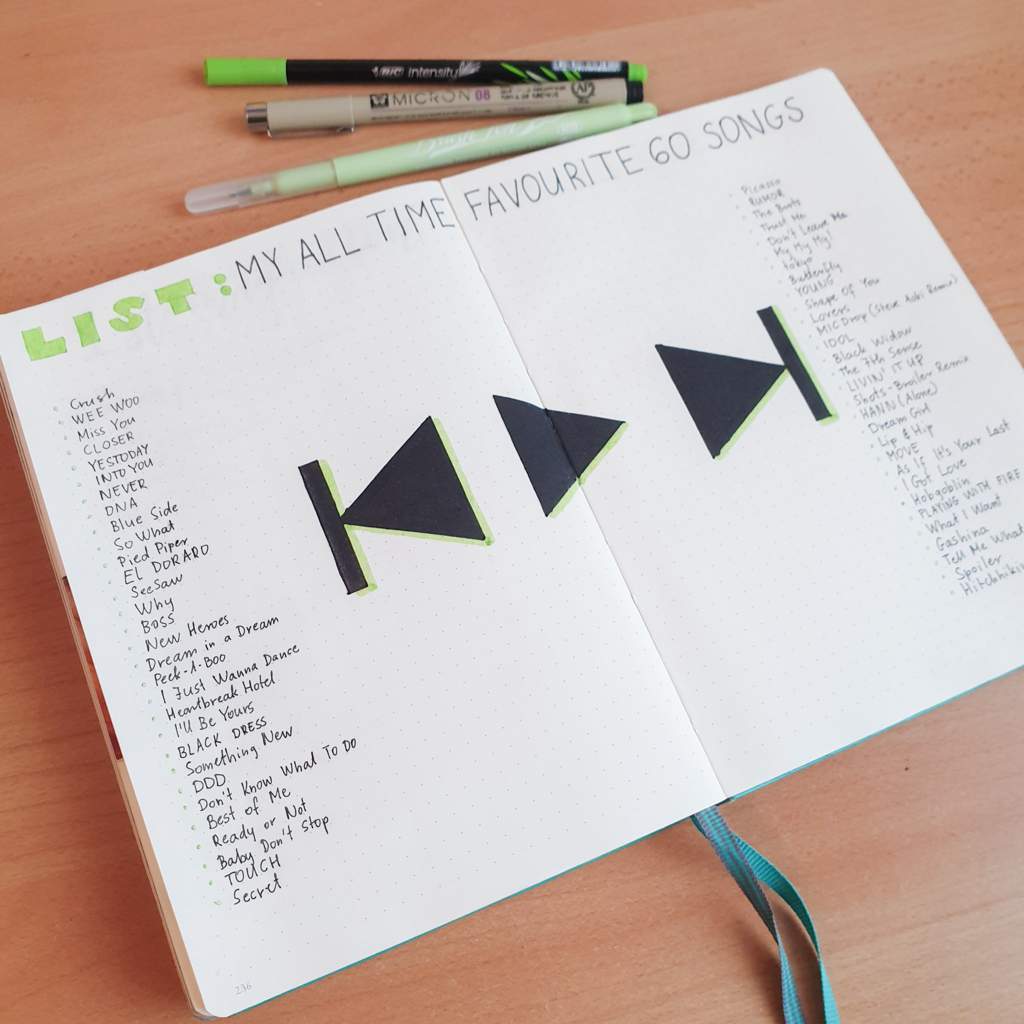 BIC intensity
MICRON 08
LIST: MY ALL TIME FAVOURITE 60 SONGS
Crush
WEE WOO
Miss You
CLOSER
YESTODAY
INTO YOU
NEVER
DNA
Blue Side
So What
Pied Piper
EL DORADO
SeeSaw
Why
BOSS
New Heroes
Dream in a Dream
Peek-A-Boo
I Just Wanna Dance
Heartbreak Hotel
I'll Be Yours
BLACK DRESS
Something New
DDD
Don't Know What To Do
Best of Me
Ready or Not
Baby Don't Stop
TOUCH
Secret
246
Picasso
RUMOR
The Boots
Trust Me
Don't Leave Me
My My My!
tokyo
Butterfly
YOUNG
Shape of You
Lovers
MIC Drop (Steve Aoki Remix)
IDOL
Black Widow
The 7th Sense
LIVIN' IT UP
Shots-Broiler Remix
HANN (Alone)
Dream Girl
Lip & Hip
MOVE
As If It's Your Last
I Got Love
Hobgoblin
PLAYING WITH FIRE
What I Want
Gashina
Tell Me What
Spoiler
Hitchhiki